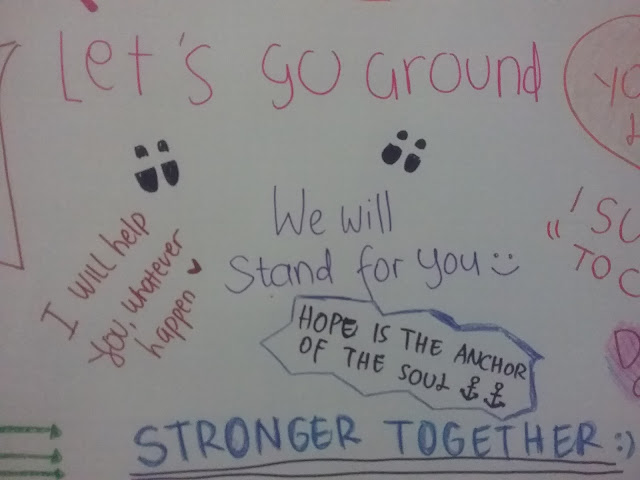 Let's go around
YO
I SU
TO C
We will
Stand for you
I will help
you, whatever
happen
HOPE IS THE ANCHOR
OF THE SOUL
STRONGER TOGETHER :)